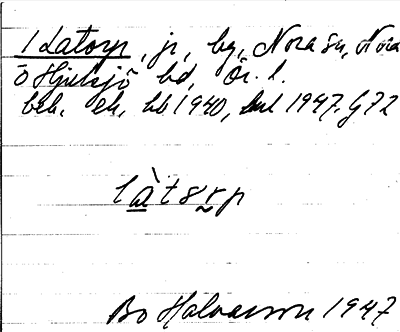 1 Latorp, jr, by, Nora sn, Nora
o Hjulsjö bd, Ör. l.
beb. ek. bl. 1940, bul 1947. G 72
làtsrp
Bo Halvarson 1947